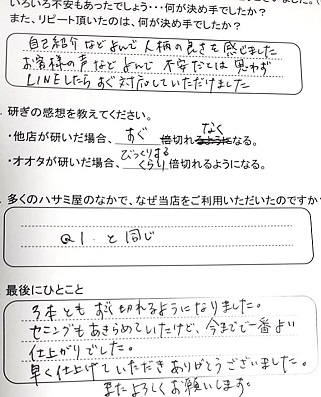 いろいろ不安もあったでしょう・・・何が決め手でしたか?
また、リピート頂いたのは、何が決め手でしたか?
自己紹介などよんで人柄の良さを感じました
お客様の声などよんで不安だとは思わず
LINEしたらすぐ対応していただけました
研ぎの感想を教えてください。
・他店が研いだ場合、すぐ倍切れなくなる。
・オオタが研いだ場合、びっくりするくらい倍切れるようになる。
多くのハサミ屋のなかで、なぜ当店をご利用いただいたのですか
Q1.と同じ
最後にひとこと
3本ともすぐ切れるようになりました。
セニングもあきらめていたけど、今までで一番よい
仕上がりでした。
早く仕上げていただきありがとうございました。
またよろしくお願いします。